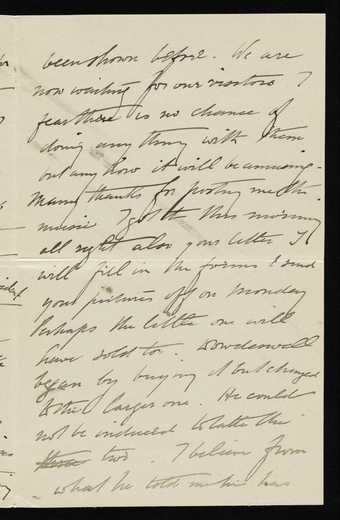 been shown before. We are
now waiting for our visitors I
fear there is no chance of
doing any thing with them
but any how it will be amusing.
Many thanks for posting me the
music I got it this morning
all right also your letter I
will fill in the forms & send
your pictures off on Monday
Perhaps the little one will
have sold too. Dowdeswell
began by buying it but changed
to the larger one. He could
not be induced to take the
two. I believe from
what he told me he has